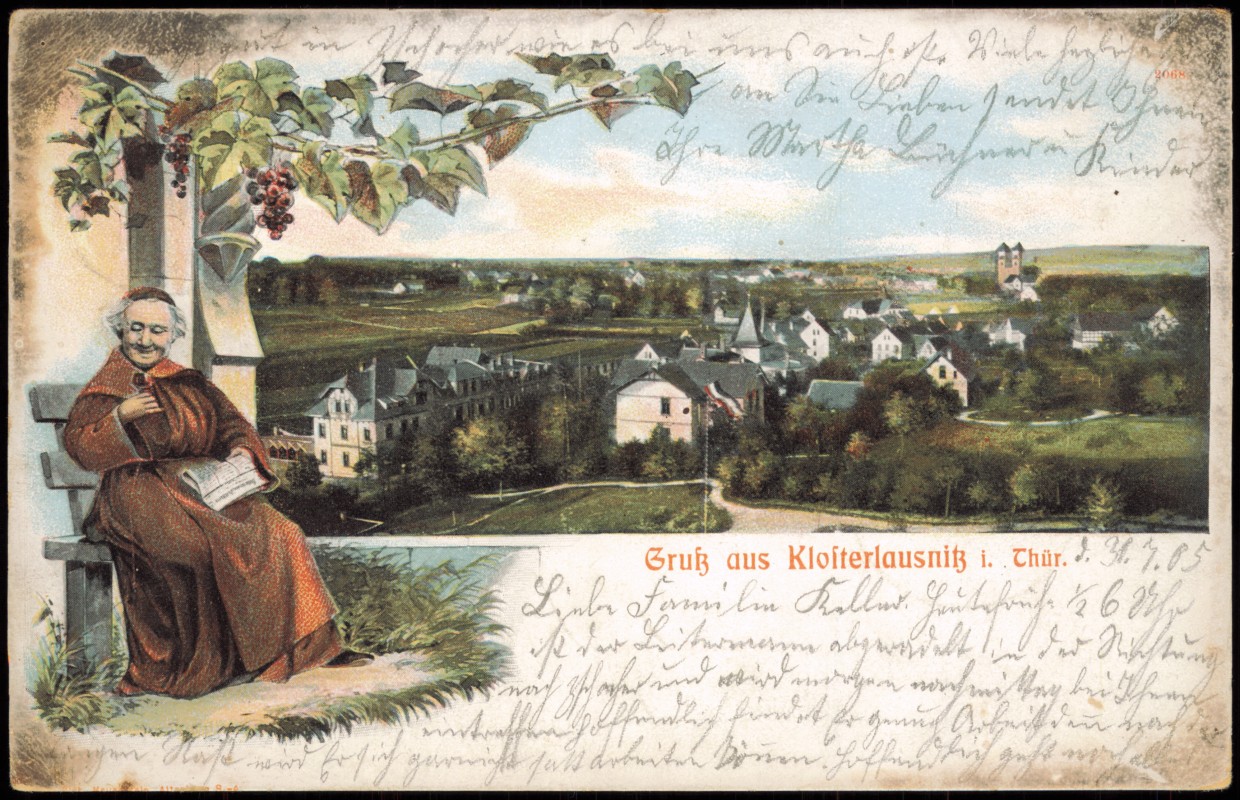 gut in Zschocher wie es bei uns auch ist. Viele herzliche
2068
an Sie Lieben sendet Ihnen
Ihre Martha Büchner u Kinder
Gruß aus Klosterlausnitz i. Thür.
d. 31.7.05
Liebe Familie Keller. Heute früh ½ 6 Uhr
ist der Leitermann abgeradelt in der Richtung
nach Zschocher und wird morgen nachmittag bei Ihnen
eintreffen hoffendlich findet Er genug Arbeit denn nach
wird Er sich garnicht satt arbeiten können. Hoffendlich geht noch alles